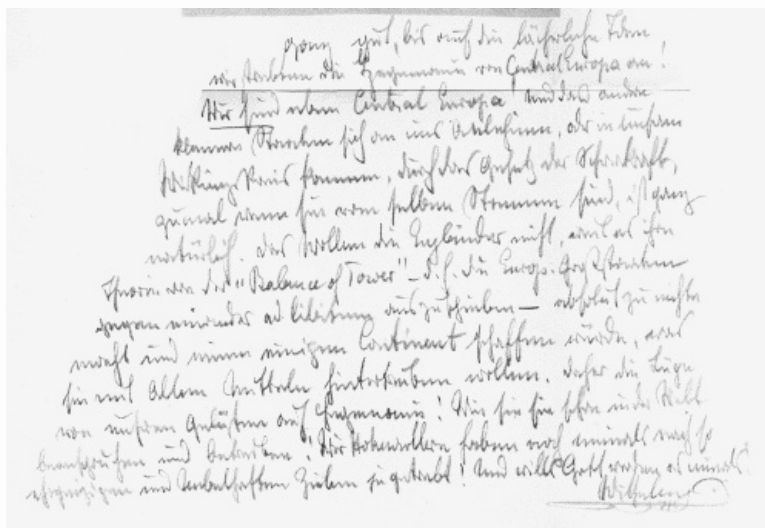 ganz gut, bis auf die lächerliche Idee,
wir strebten die Hegemonie von Central Europa an!
Wir sind eben Central Europa! Und daß andre
kleinere Staaten sich an uns anlehnen, oder in unseren
Wirkungskreis kommen, durch das Gesetz der Schwerkraft,
zumal wenn sie vom selben Stamme sind, ist ganz
natürlich. Das wollen die Engländer nicht, weil es ihre
Theorie von der "Balance of Power" — d. h. die Europ. Großstaaten
gegen einander ad libitum auszuspielen — absolut zu nichte
macht und einen einigen Continent schaffen würde, was
sie mit allen Mitteln hintertreiben wollen. Daher die Lüge
von unsren Gelüsten auf Hegemonie! Wie sie sie schon in der Welt
beanspruchen und betreiben! Wir Hohenzollern haben noch niemals nach so
ehrgeizigen und nebelhaften Zielen gestrebt! Und will's Gott werden es niemals.
Wilhelm